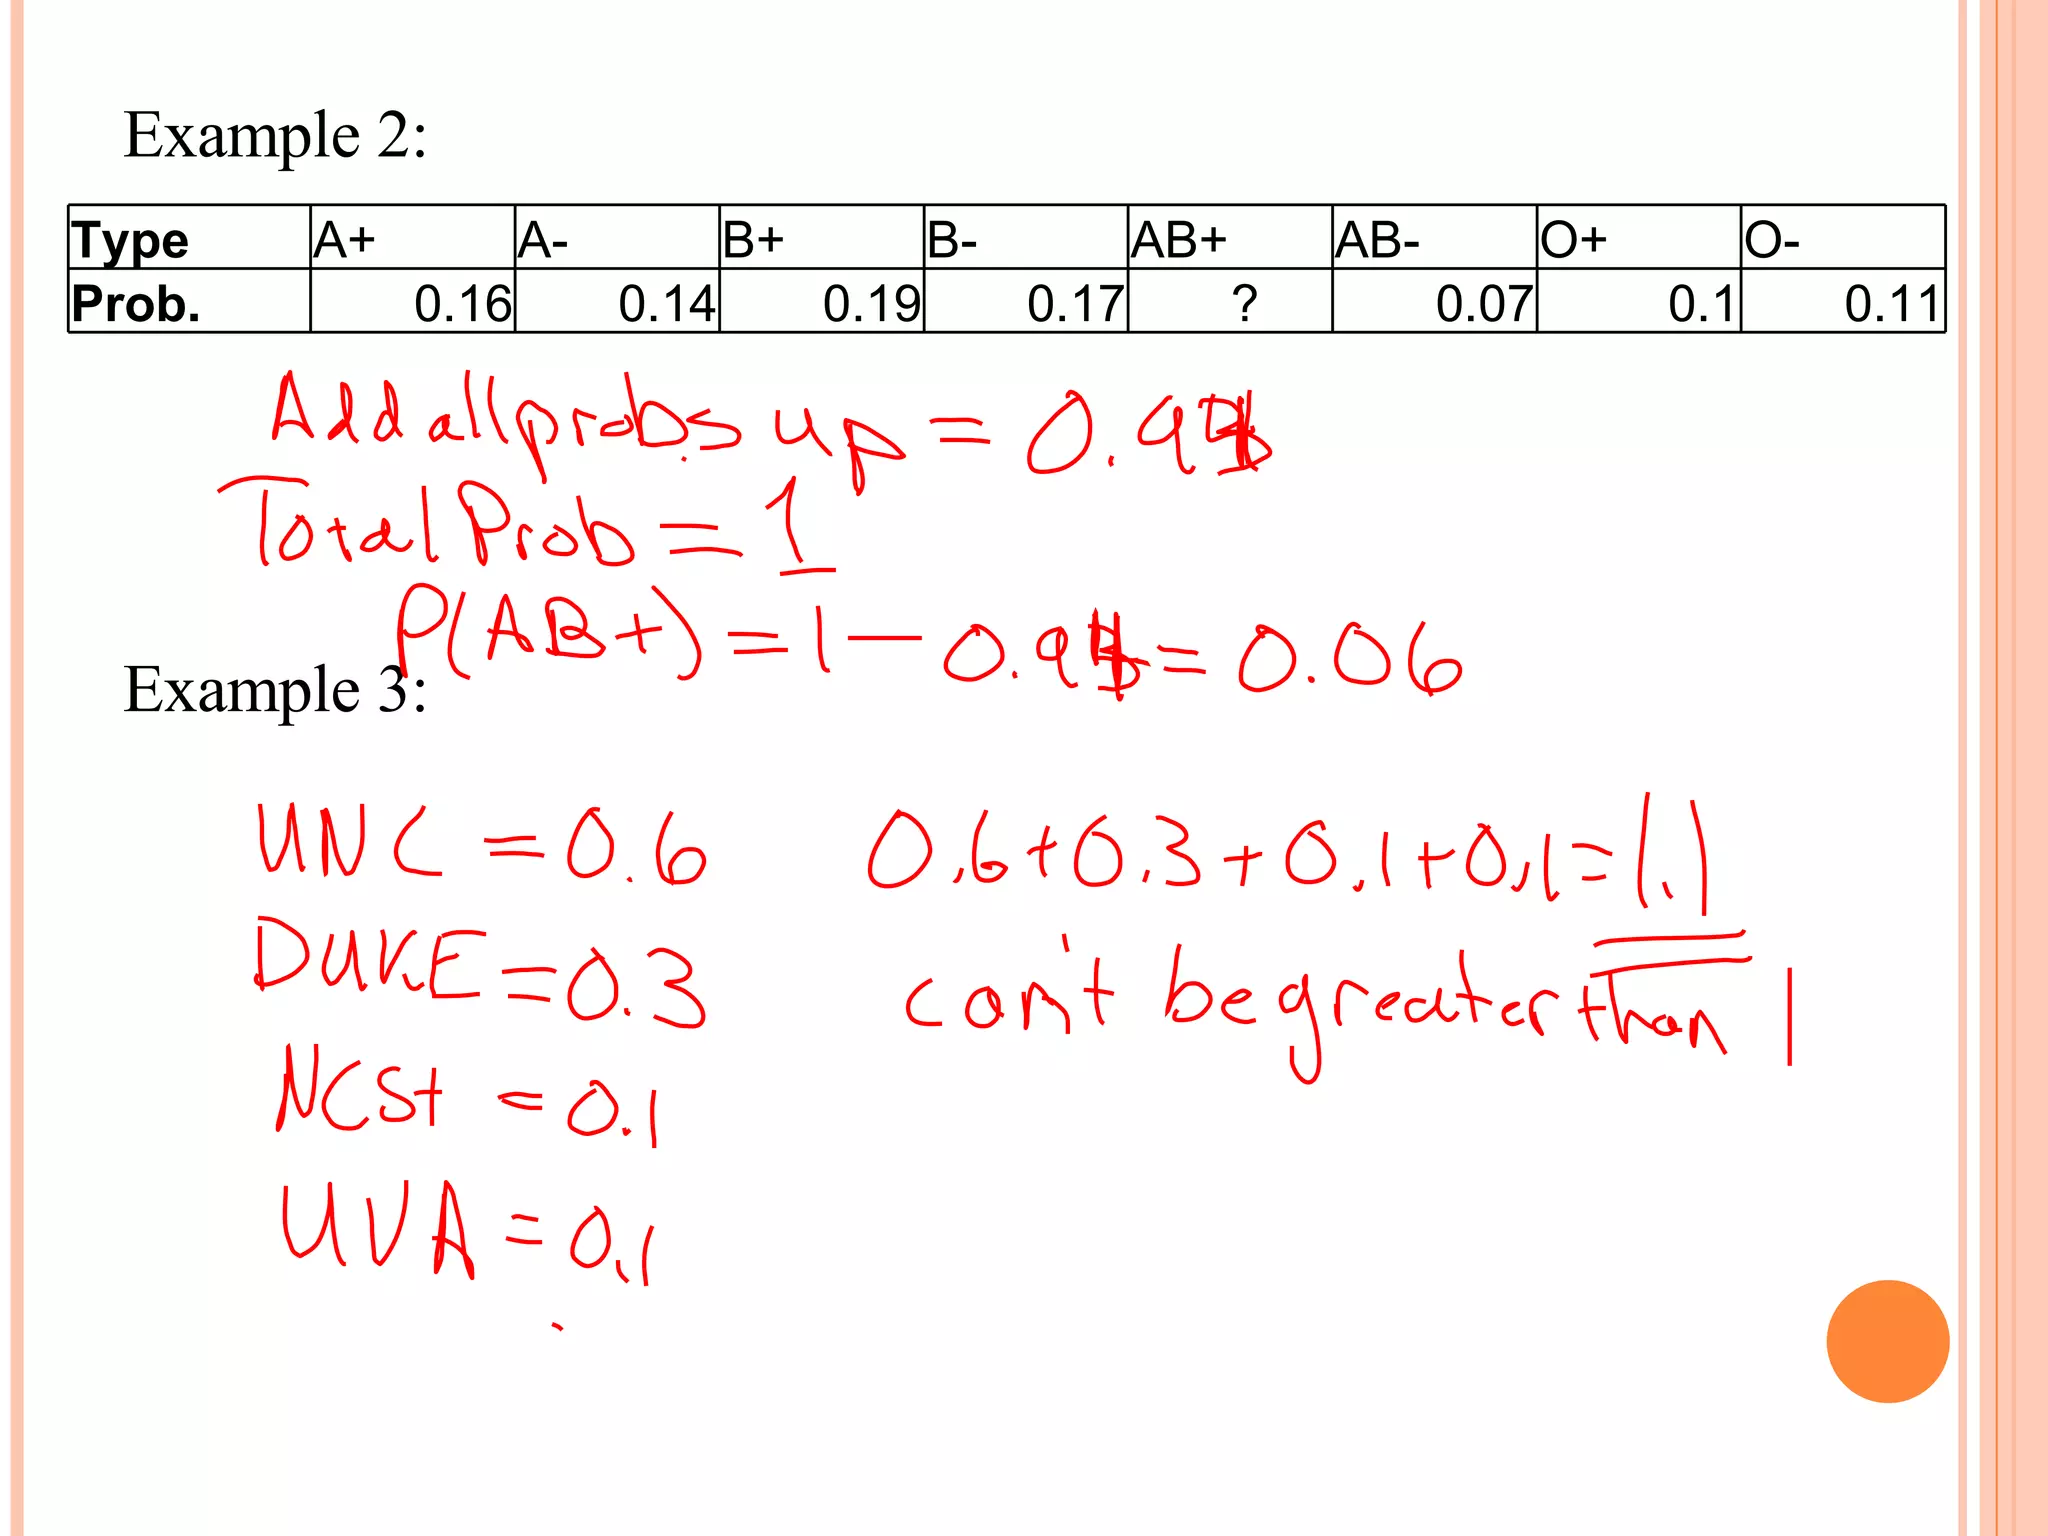 Example 2:
Type A+ A- B+ B- AB+ AB- O+ O-
Prob. 0.16 0.14 0.19 0.17 ? 0.07 0.1 0.11
Add all probs up = 0.94
Total Prob = 1
P(AB+) = 1 - 0.94 = 0.06
Example 3:
UNC = 0.6 0.6+0.3+0.1+0.1=1.1
DUKE = 0.3 can't be greater than 1
NCSt = 0.1
UVA = 0.1